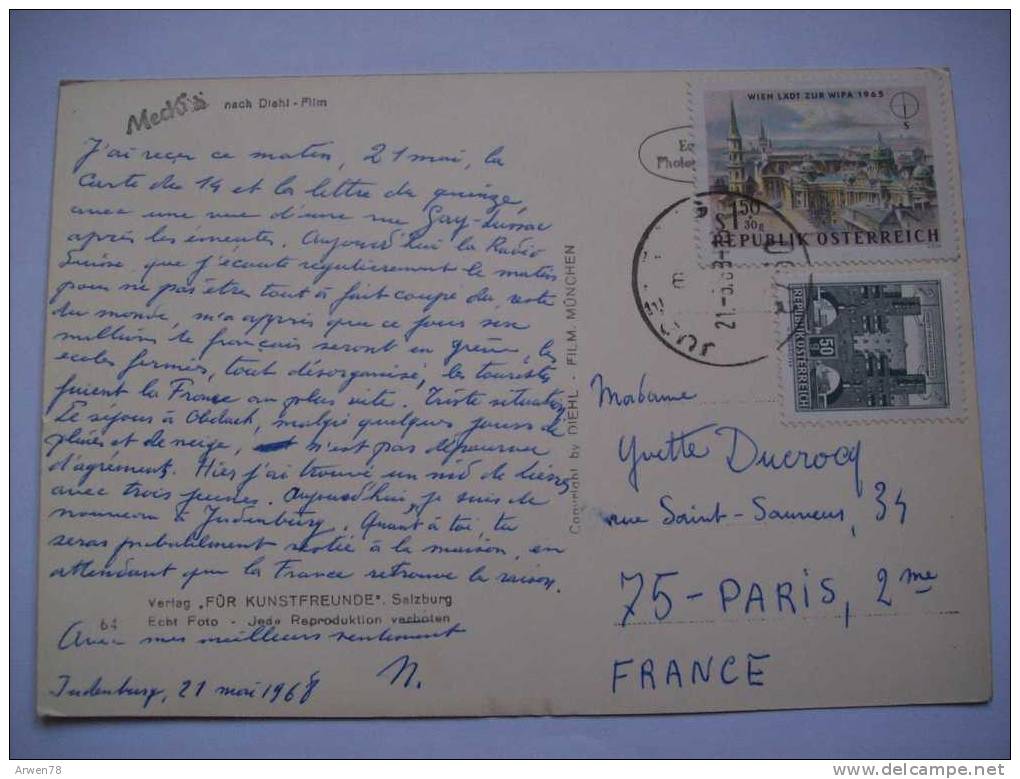 Mecki's nach Diehl - Film
J'ai reçu ce matin, 21 mai, la
Carte du 14 et la lettre du quinze
avec une vue d'une rue Gay-Lussac
après les émeutes. Aujourd'hui la Radio
Suisse, que j'écoute régulièrement le matin
pour ne pas être tout à fait coupé du reste
du monde, m'a appris que ce jour six
millions de français seront en grève, les
écoles fermées, tout désorganisé, les touristes
fuient la France au plus vite. Triste situation
Le séjour à Obdach, malgré quelques jours de
pluies et de neige, n'est pas dépourvu
d'agréments. Hier j'ai trouvé un nid de
avec trois jeunes. Aujourd'hui, je suis de
nouveau à Judenburg. Quant à toi, tu
seras probablement restée à la maison, en
attendant que la France retrouve la raison.
Verlag „FÜR KUNSTFREUNDE“, Salzburg
64 Echt Foto - Jede Reproduktion verboten
Avec mes meilleurs sentiment
N.
Judenburg, 21 mai 1968
Copyright by DIEHL - FILM MÜNCHEN
WIEN LÄDT ZUR WIPA 1965
S 1.50
+30g
REPUBLIK ÖSTERREICH
50
REPUBLIK ÖSTERREICH
Madame
Yvette Ducrocq
rue Saint-Sauveur, 34
75-PARIS, 2me
FRANCE
Arwen78
delcampe.net